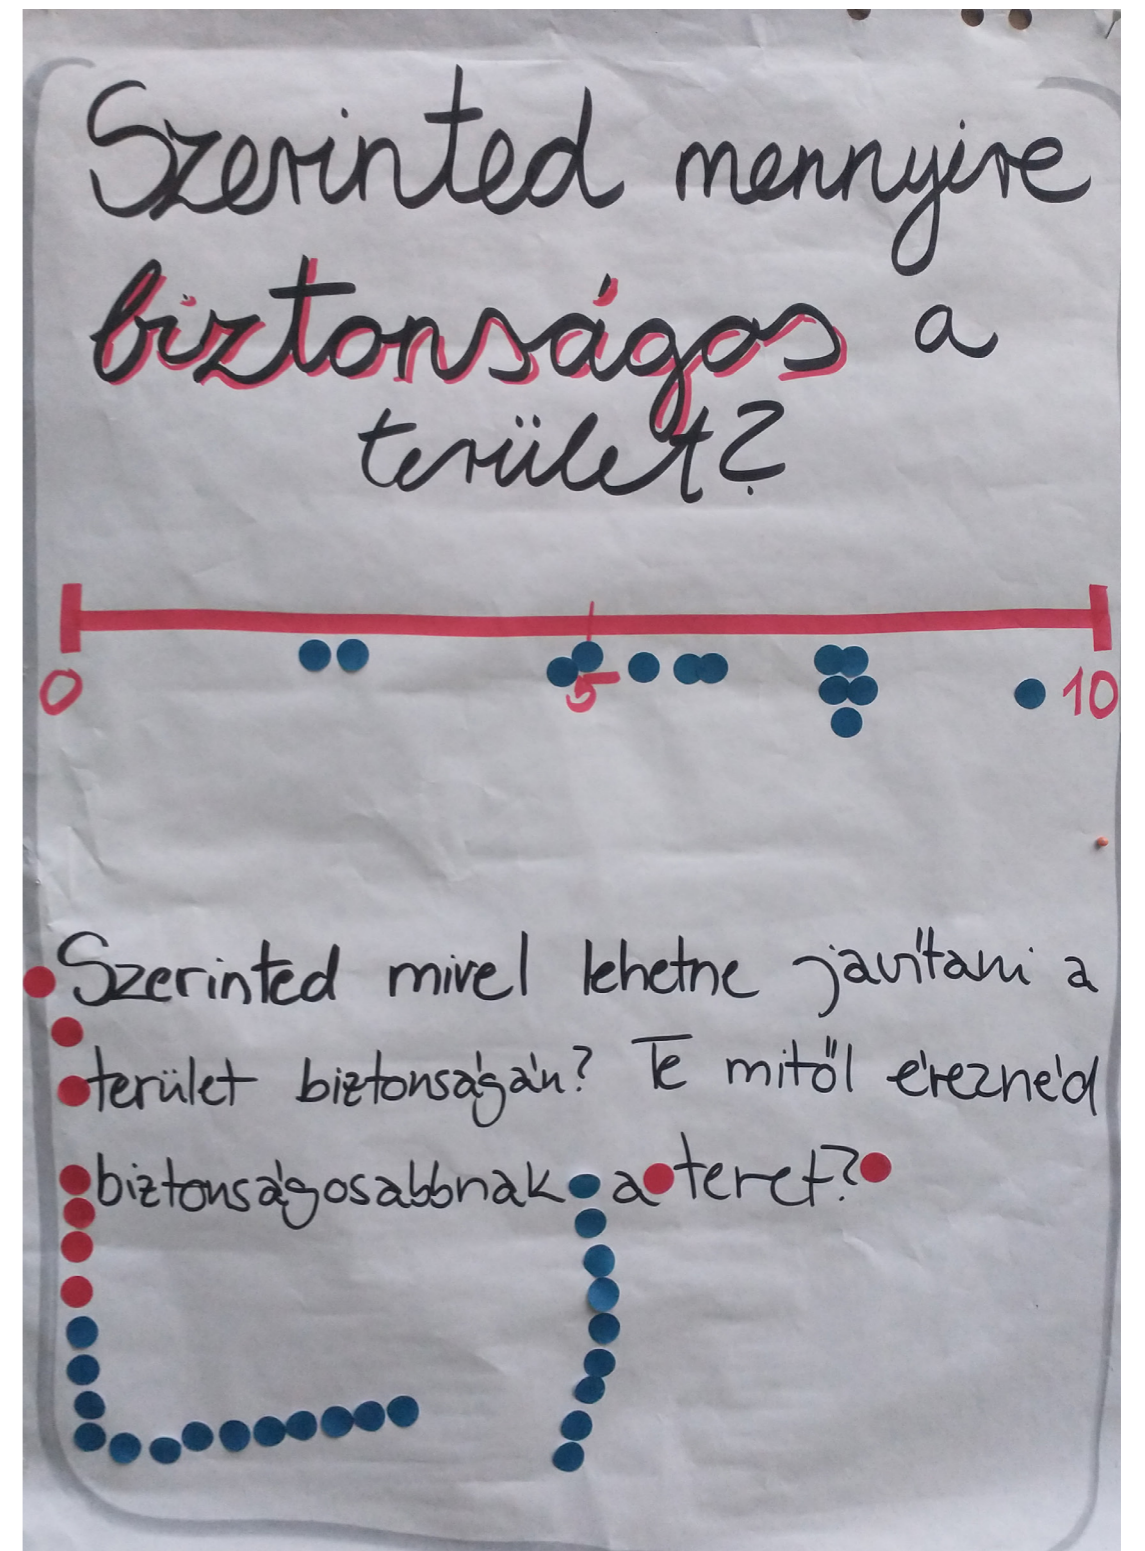 Szerinted mennyire
biztonságos a
terület?
0 5 10
Szerinted mivel lehetne javítani a
terület biztonságán? Te mitől éreznéd
biztonságosabbnak a teret?